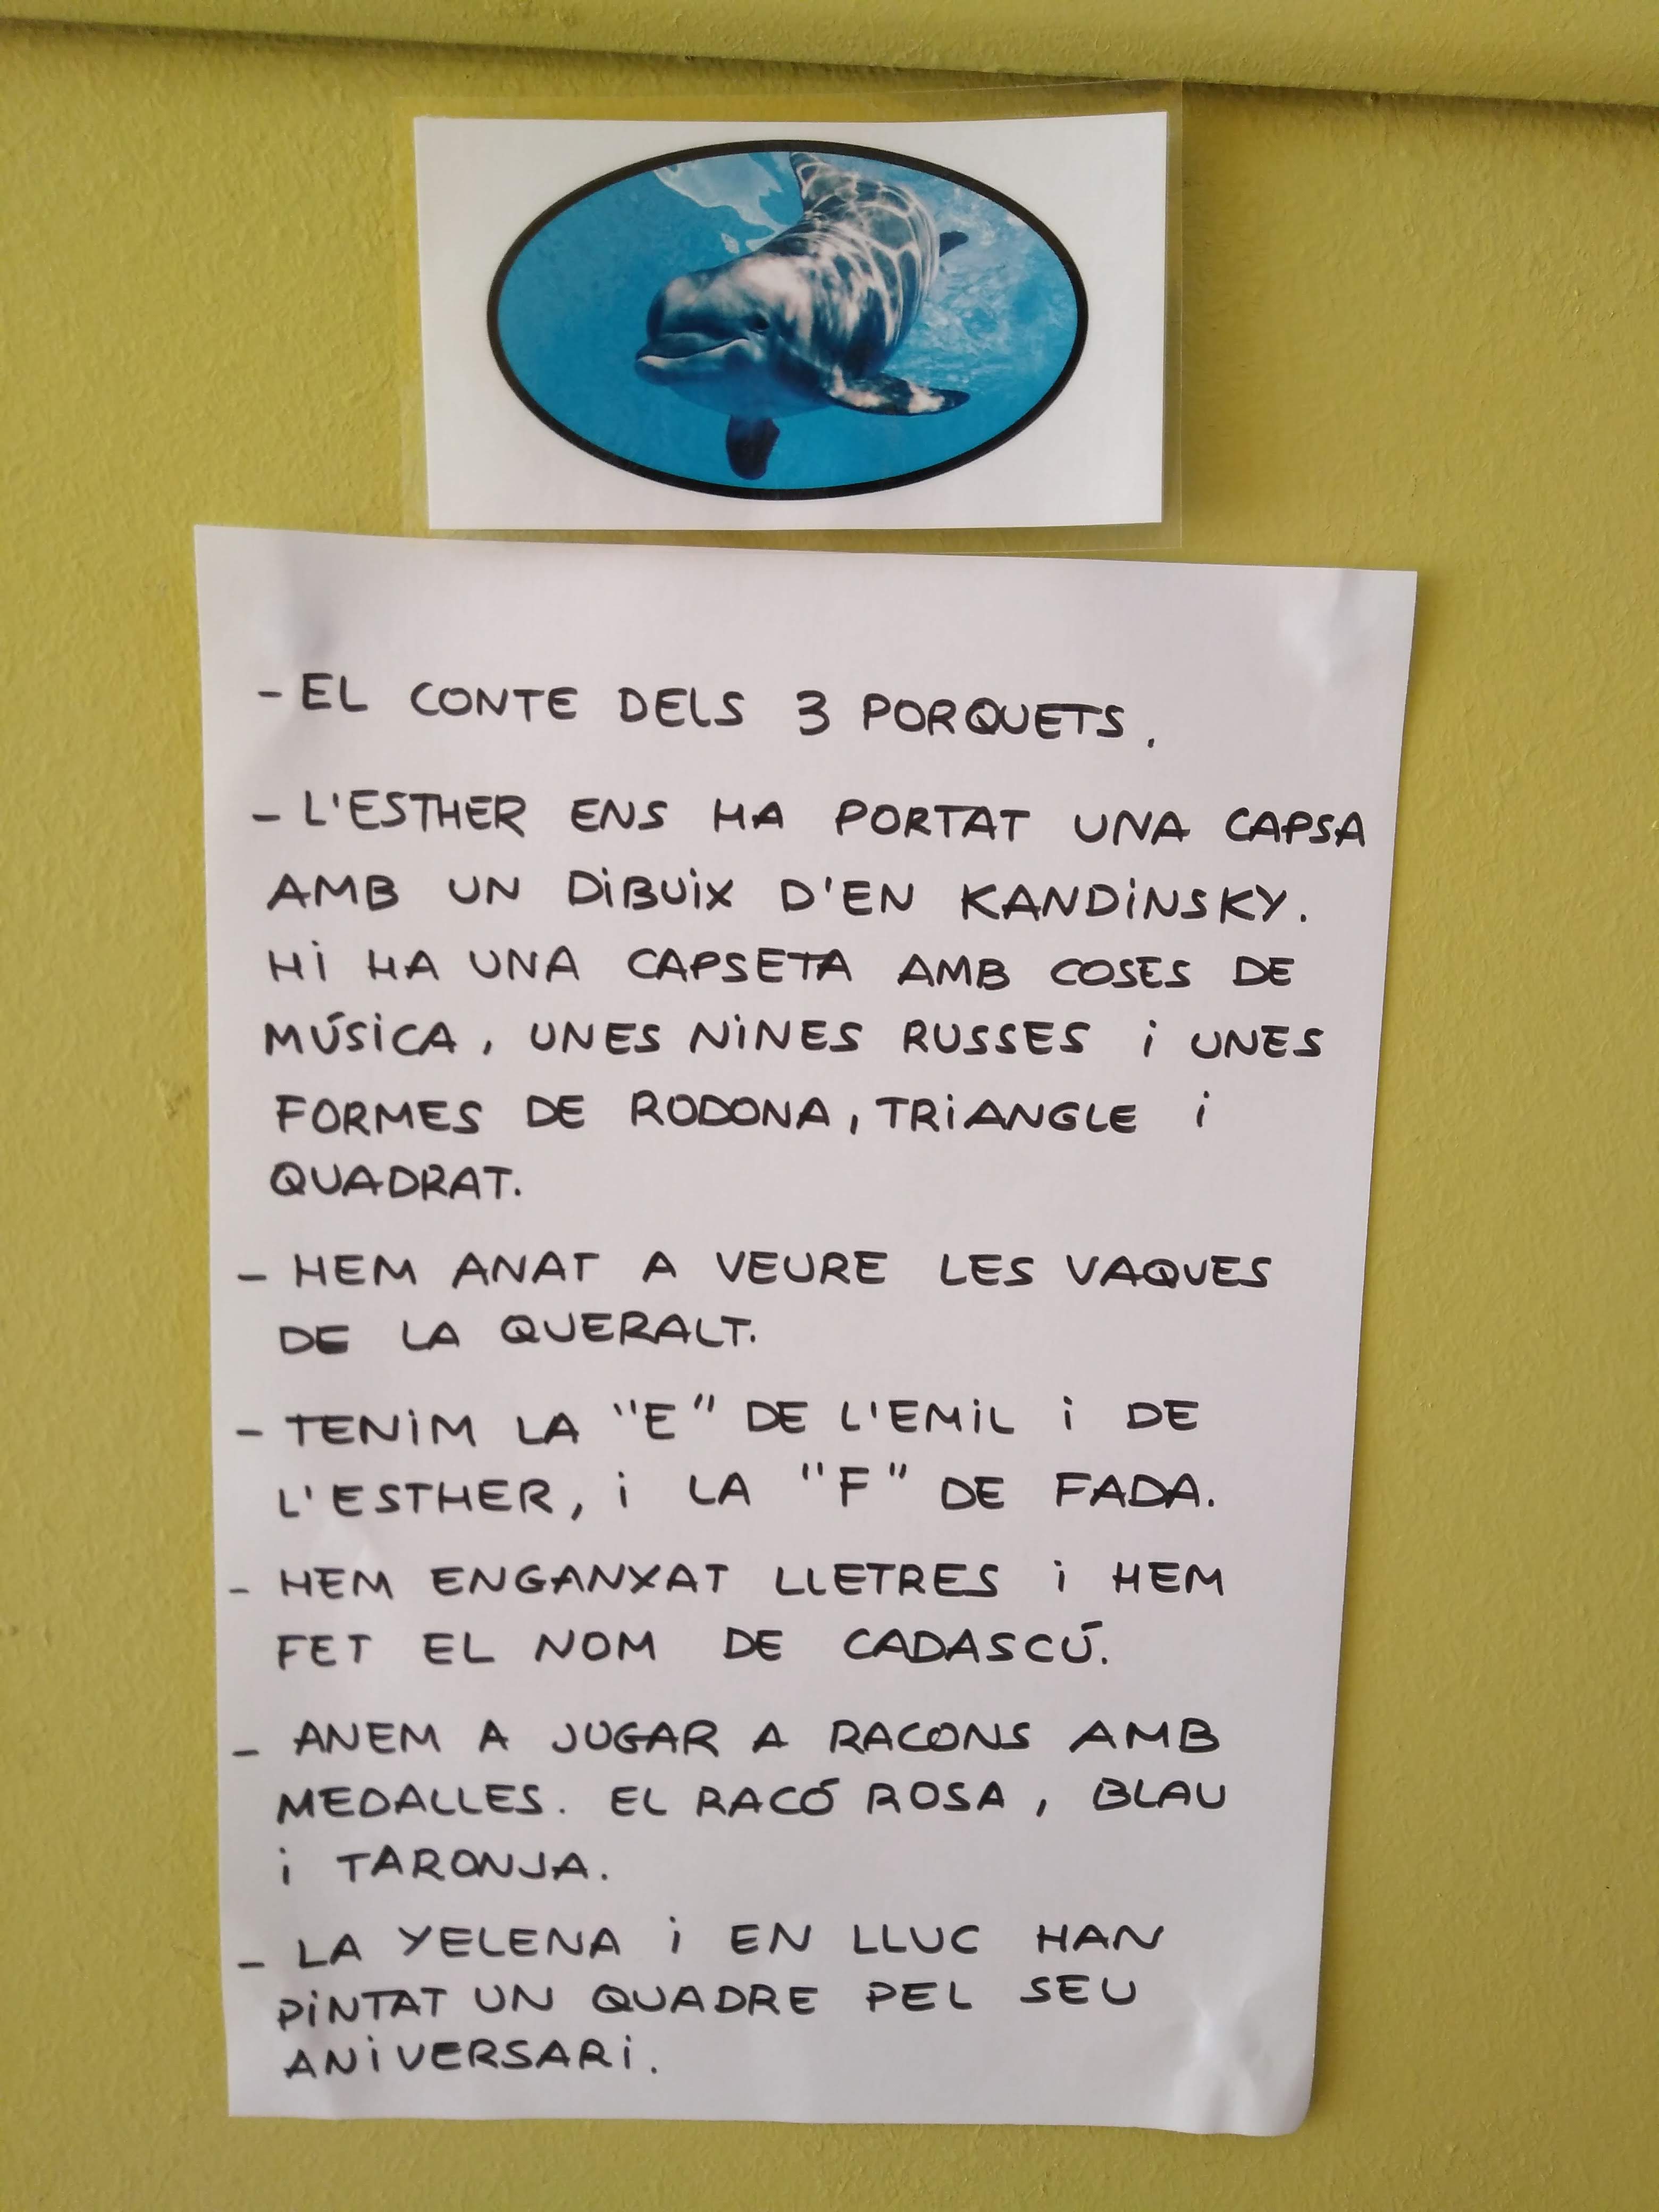 - EL CONTE DELS 3 PORQUETS.
- L'ESTHER ENS HA PORTAT UNA CAPSA
AMB UN DIBUIX D'EN KANDINSKY.
HI HA UNA CAPSETA AMB COSES DE
MÚSICA, UNES NINES RUSSES I UNES
FORMES DE RODONA, TRIANGLE I
QUADRAT.
- HEM ANAT A VEURE LES VAQUES
DE LA QUERALT.
- TENIM LA "E" DE L'EMIL I DE
L'ESTHER, I LA "F" DE FADA.
- HEM ENGANXAT LLETRES I HEM
FET EL NOM DE CADASCÚ.
- ANEM A JUGAR A RACONS AMB
MEDALLES. EL RACÓ ROSA, BLAU
I TARONJA.
- LA YELENA I EN LLUC HAN
PINTAT UN QUADRE PEL SEU
ANIVERSARI.